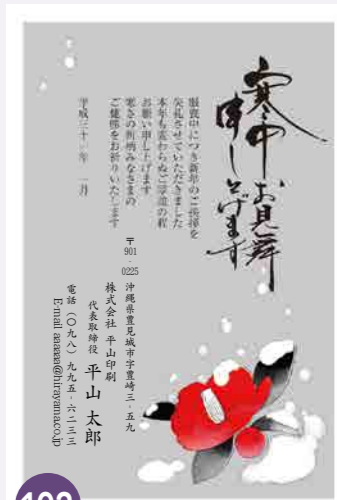 寒中お見舞
申し上げます
服喪中につき新年のご挨拶を
失礼させていただきました
本年も変わらぬご厚誼の程
お願い申し上げます
寒さの折柄みなさまの
ご健勝をお祈りいたします
平成三十一年 一月
〒901-0225 沖縄県豊見城市字豊崎三-五九
株式会社 平山印刷
代表取締役 平山 太郎
電話(〇九八)九九五-六二三三
E-mail aaaaaa@hirayama.co.jp